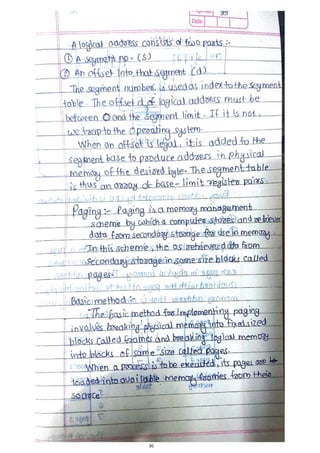 95
Date
A logical address consists of two parts :-
① A segment no. - (s)
② An offset into that segment (d)
The segment number, is used as index to the segment
table. The offset d of logical address must be
between 0 and the segment limit. If it is not,
we trap to the operating system.
When an offset is legal, it is added to the
segment base to produce address in physical
memory of the desired byte. The segment table
is thus an array of base-limit register pairs.
Paging :- Paging is a memory management
scheme by which a computer stores and retrieve
data from secondary storage for use in memory.
In this scheme, the OS retrieves data from
secondary storage in same size blocks called
pages.
Basic method :-
The basic method for implementing paging
involves breaking physical memory into fixed sized
blocks called frames and breaking logical memory
into blocks of same size called pages.
When a process is to be executed, its pages are
loaded into available memory frames from their
source.